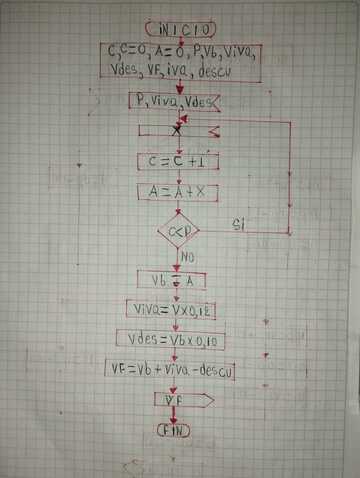 INICIO
C, C=0, A=0, P, Vb, Viva,
Vdes, VF, iva, descu
P, Viva, Vdes
X
C = C + 1
A = A + X
C<P
Si
NO
Vb = A
Viva = V x 0,12
Vdes = Vb x 0,10
VF = Vb + Viva - descu
VF
FIN